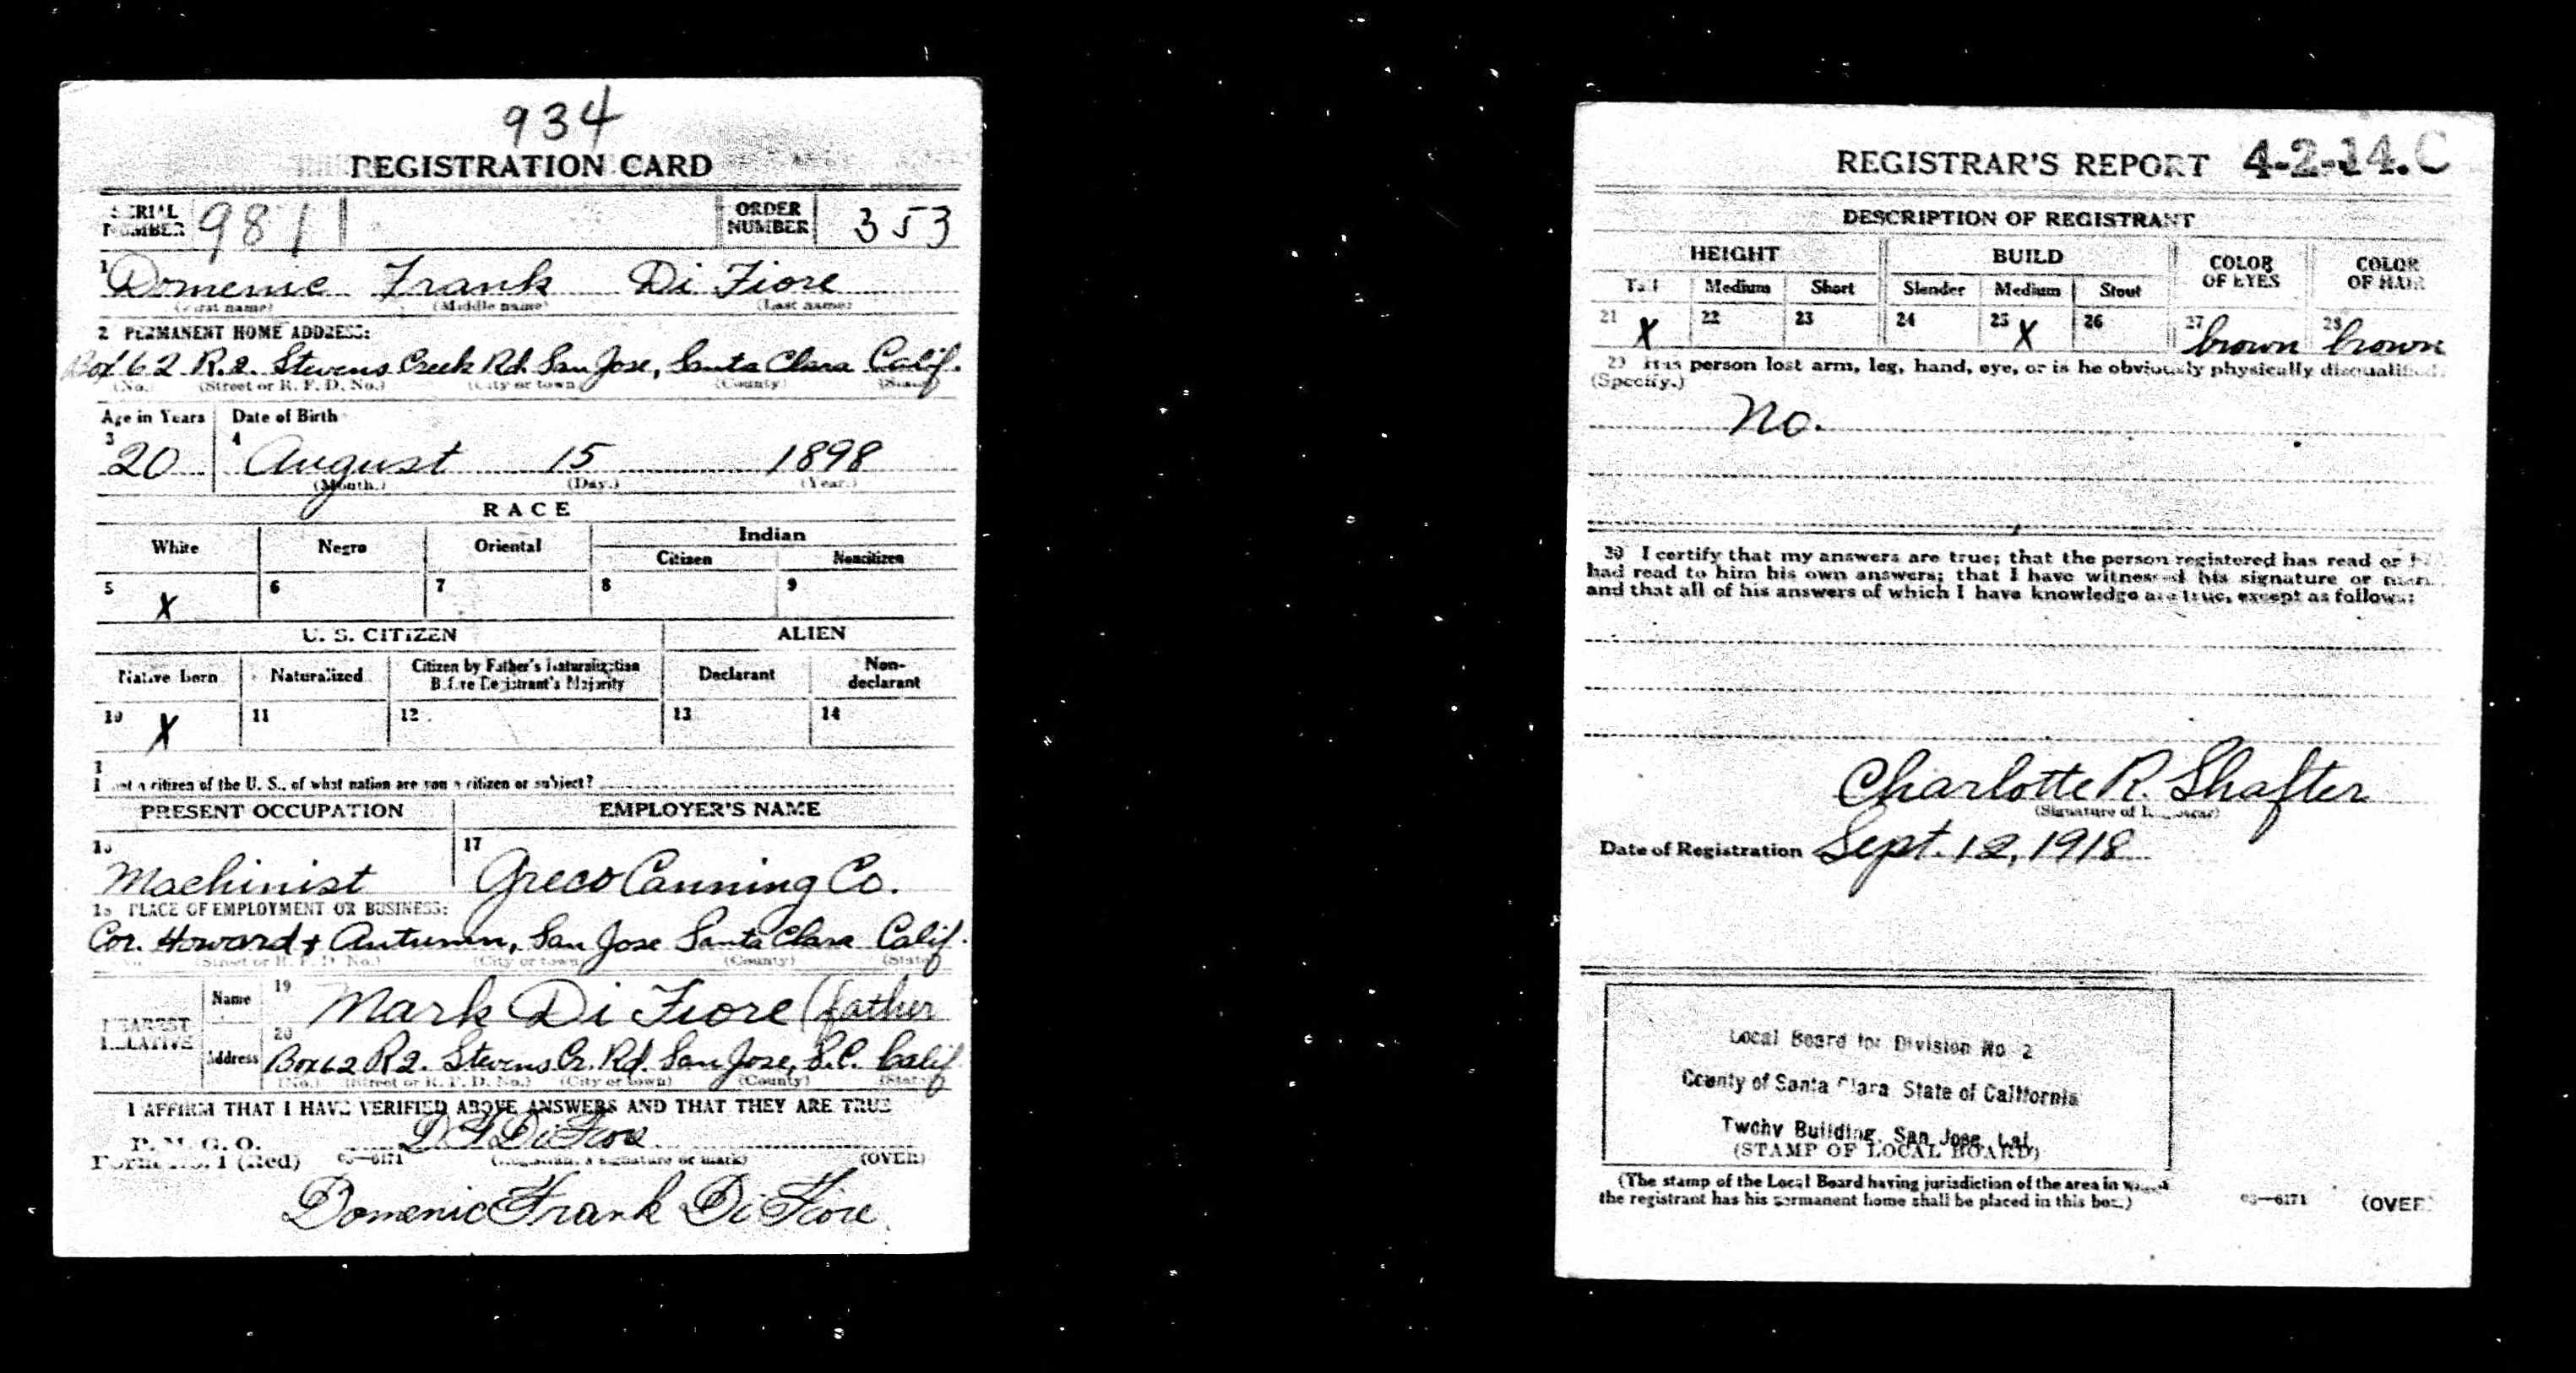 934
REGISTRATION CARD
SERIAL NUMBER 981 ORDER NUMBER 353
1 Domenic Frank Di Fiore
(First name) (Middle name) (Last name)
2 PERMANENT HOME ADDRESS:
Box 62 R.2. Stevens Creek Rd. San Jose, Santa Clara Calif.
(No.) (Street or R. F. D. No.) (City or town) (County) (State)
Age in Years Date of Birth
3 20 4 August 15 1898
(Month.) (Day.) (Year.)
RACE
White Negro Oriental Indian
Citizen Noncitizen
5 X 6 7 8 9
U. S. CITIZEN ALIEN
Native born Naturalized Citizen by Father's Naturalization Before Registrant's Majority Declarant Non-declarant
10 X 11 12 13 14
not a citizen of the U. S., of what nation are you a citizen or subject?
PRESENT OCCUPATION EMPLOYER'S NAME
Machinist 17 Greco Canning Co.
PLACE OF EMPLOYMENT OR BUSINESS:
Cor. Howard & Autumn, San Jose Santa Clara Calif.
(Street or R. F. D. No.) (City or town) (County) (State)
NEAREST RELATIVE Name 19 Mark Di Fiore (father
Address 20 Box 62 R2. Stevens Cr. Rd. San Jose, S.C. Calif
(No.) (Street or R. F. D. No.) (City or town) (County) (State)
I AFFIRM THAT I HAVE VERIFIED ABOVE ANSWERS AND THAT THEY ARE TRUE
P. M. G. O. D F Di Fiore
Form No. 1 (Red) 03—6171 (Registrant's signature or mark) (OVER)
Domenic Frank Di Fiore
REGISTRAR'S REPORT 4-2-14.C
DESCRIPTION OF REGISTRANT
HEIGHT BUILD COLOR OF EYES COLOR OF HAIR
Tall Medium Short Slender Medium Stout
21 X 22 23 24 25 X 26 27 brown 28 brown
29 Has person lost arm, leg, hand, eye, or is he obviously physically disqualified.
(Specify.)
No.
30 I certify that my answers are true; that the person registered has read or
had read to him his own answers; that I have witnessed his signature or mark
and that all of his answers of which I have knowledge are true, except as follows:
Charlotte R. Shafter
(Signature of Registrar)
Date of Registration Sept. 12, 1918
Local Board for Division No 2
County of Santa Clara State of California
Twohy Building, San Jose, Cal.
(STAMP OF LOCAL BOARD)
(The stamp of the Local Board having jurisdiction of the area in which
the registrant has his permanent home shall be placed in this box.)
03—6171 (OVER)